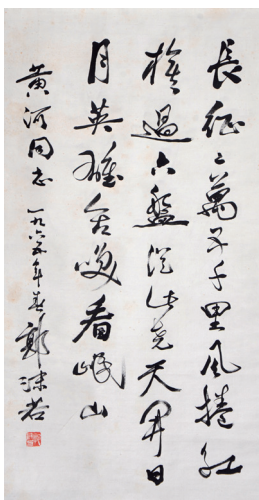 長征二萬五千里風捲紅
旗過六盤從此堯天開日
月英雄含咲看岷山
黃河同志 一九六五年春 郭沫若